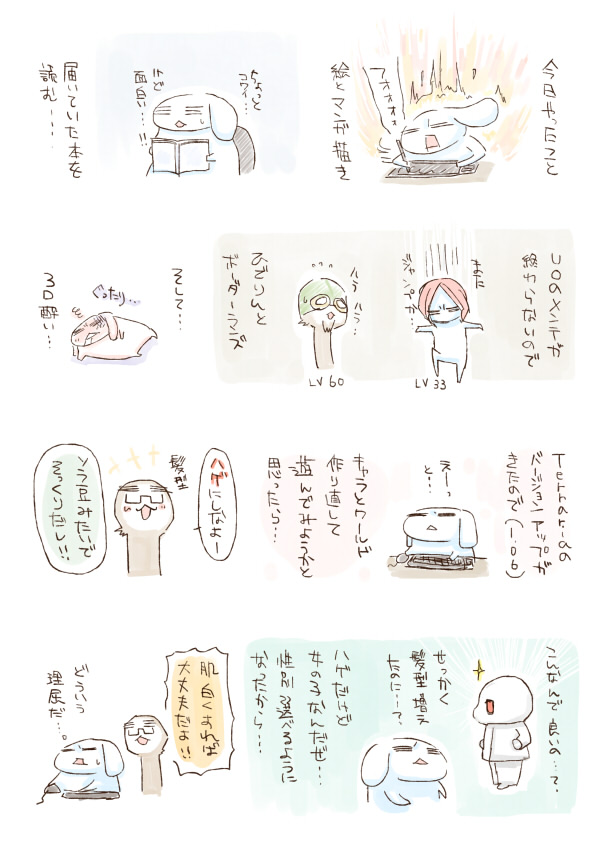 今日やったこと
フォォォォ
絵とマンガ描き
ちょっと
コワイ…
けど
面白い…!!
届いていた本を
読む…
UOのメンテが
終わらないので
また
ジャンプか…
LV 33
ハラ
ハラ…
LV 60
ひでりんと
ボーダーランズ
そして…
ぐったり…
3D酔い…
Terrariaの
バージョンアップが
きたので(1.06)
えーっ
と…
キャラとワールド
作り直して
遊んでみようかと
思ったら…
髪型
ハゲにしなよー
ソラ豆みたいで
そっくりだし!!
こんなんで良いの…て、
せっかく
髪型増え
たのに…?、
ハゲだけど
女の子なんだぜ…
性別選べるように
なったから…
肌白くすれば
大丈夫だよ!!
どういう
理屈だ…。